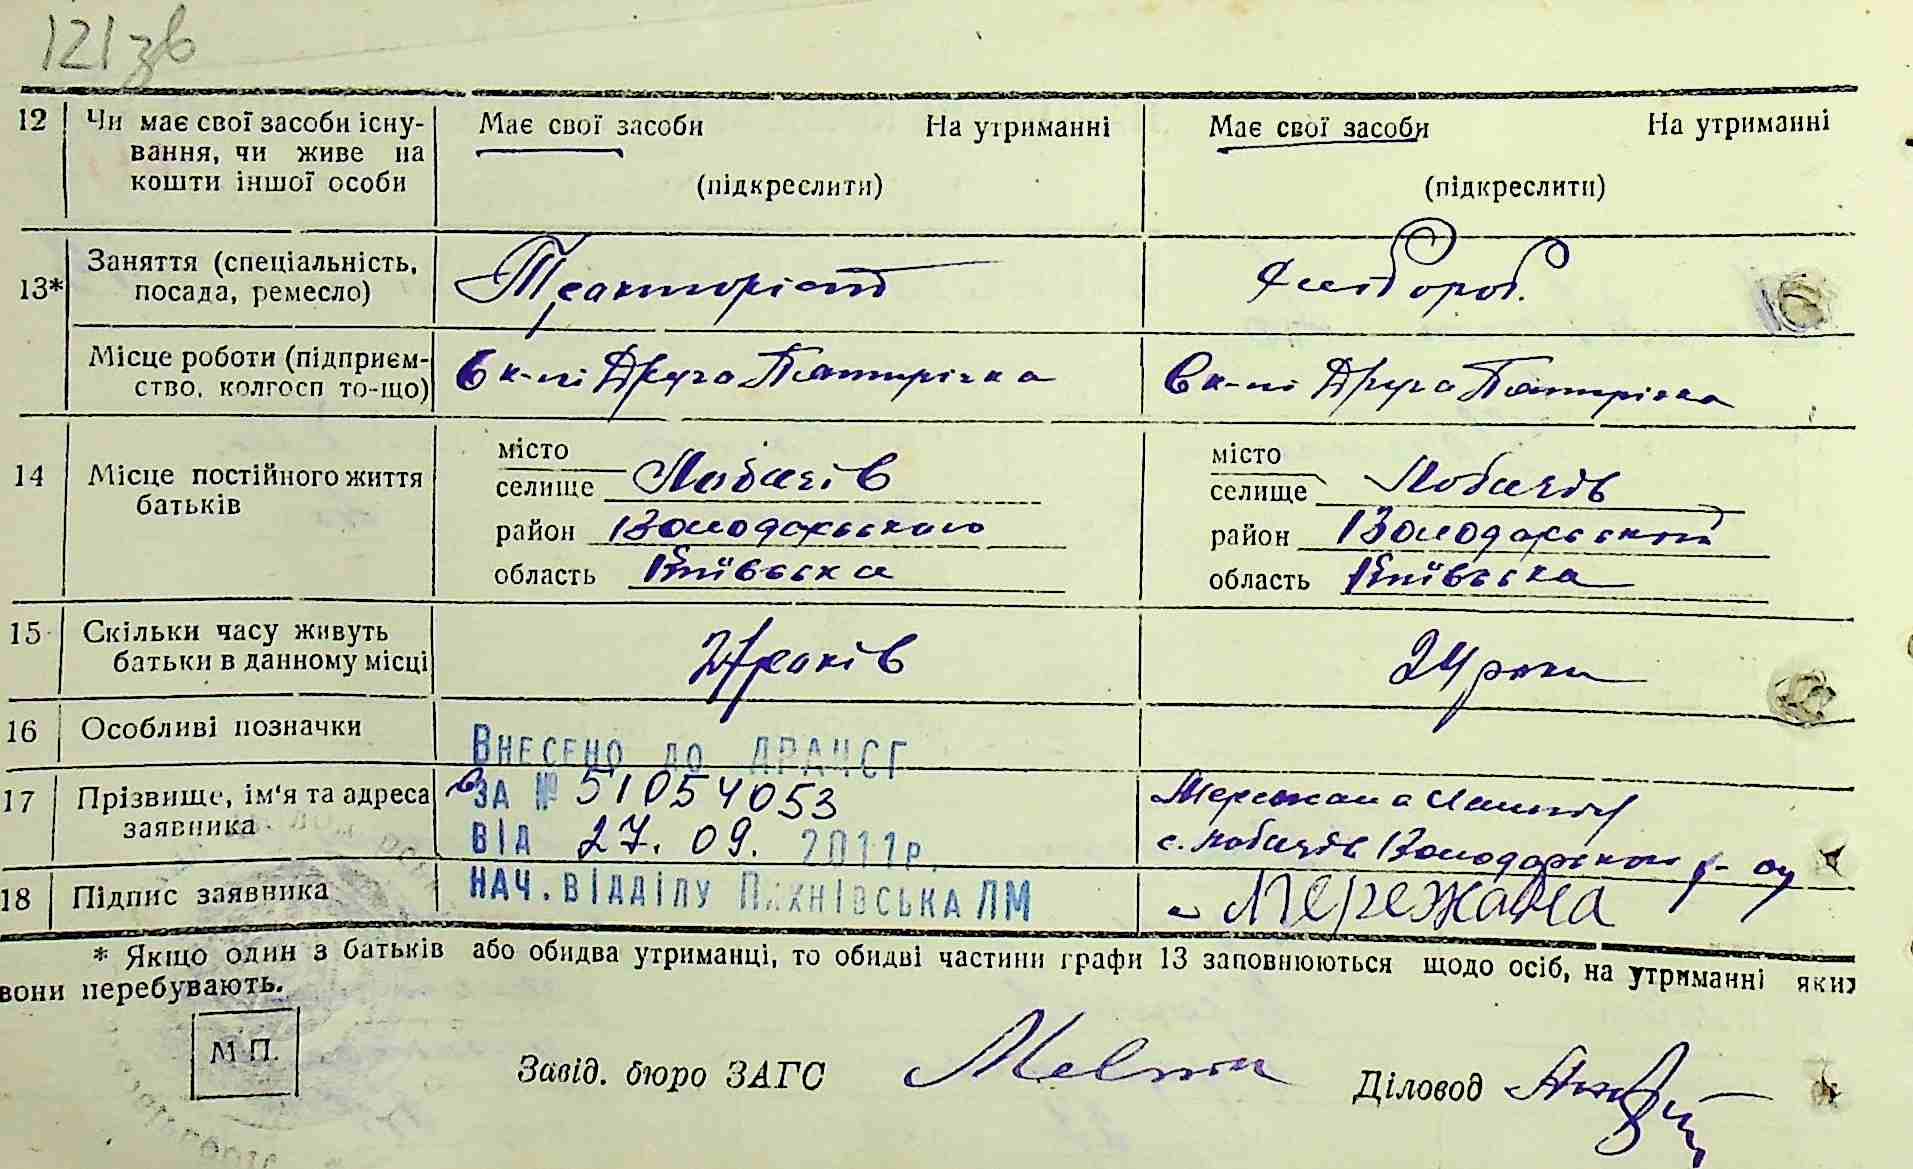 121 зв
12 Чи має свої засоби існу- Має свої засоби На утриманні Має свої засоби На утриманні
вання, чи живе на
кошти іншої особи (підкреслити) (підкреслити)
Заняття (спеціальність, Тракторіст
13* посада, ремесло)
Місце роботи (підприєм- В к-пі Друга Пятирічка В к-пі Друга Пятирічка
ство, колгосп то-що)
місто місто
14 Місце постійного життя селище Лобачів селище Лобачів
батьків район Володарського район Володарського
область Київська область Київська
15 Скільки часу живуть 27 років 24 роки
батьки в данному місці
16 Особливі позначки
Внесено до ДРАЦСГ
17 Прізвище, ім'я та адреса за № 51054053 Мережана
заявника від 27. 09. 2011р. с. Лобачів Володарського р-ну
18 Підпис заявника нач. відділу Пихнівська ЛМ Мережана
* Якщо один з батьків або обидва утриманці, то обидві частини графи 13 заповнюються щодо осіб, на утриманні яких
вони перебувають.
М П.
Завід. бюро ЗАГС Діловод